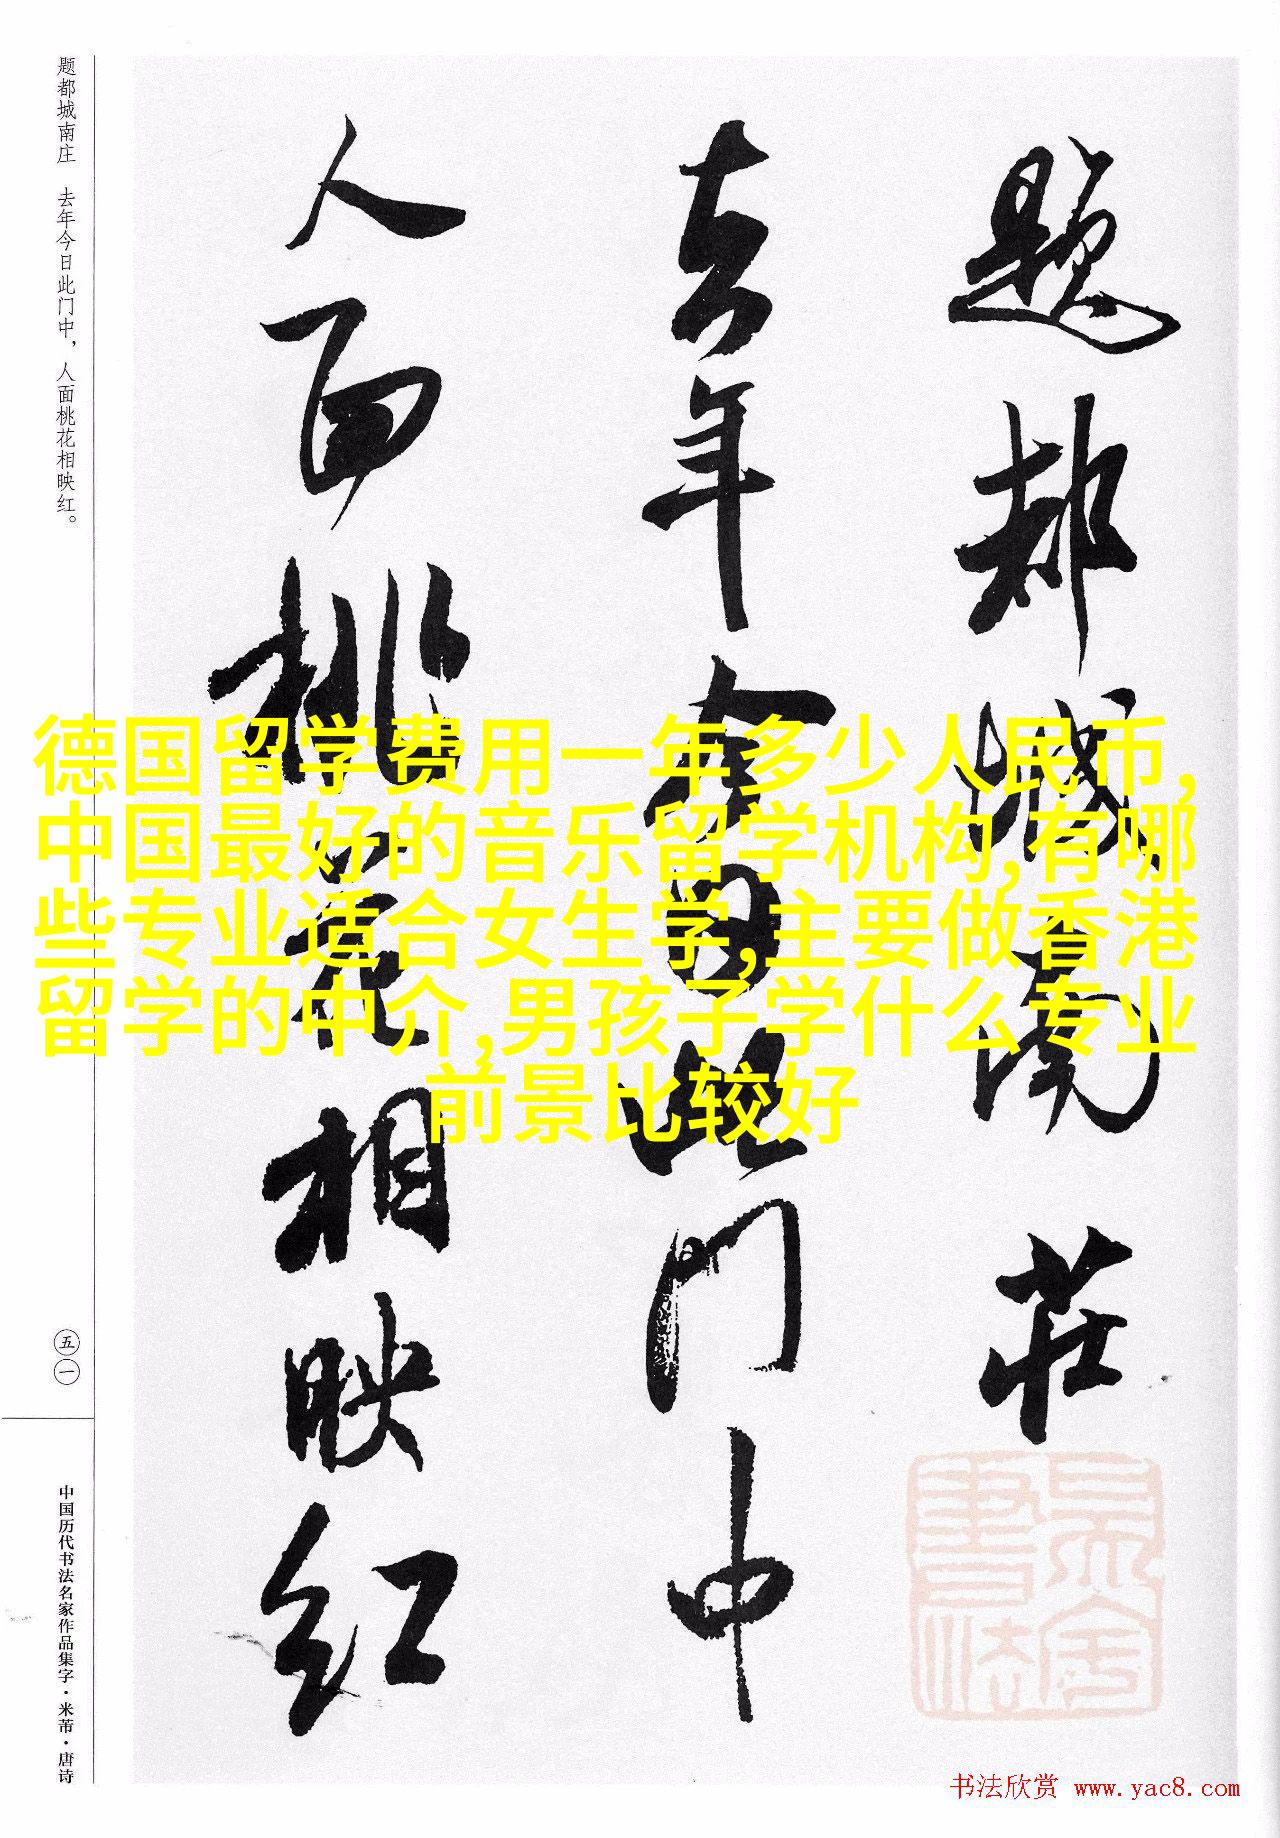 题都城南庄
去年今日此门中
人面桃花相映红
题都城南庄 去年今日此门中，人面桃花相映红。
五一
中国历代书法名家作品集字·米芾·唐诗
德国留学费用一年多少人民币,
中国最好的音乐留学机构,有哪
些专业适合女生学,主要做香港
留学的中介,男孩子学什么专业
前景比较好
书法欣赏 www.yac8.com